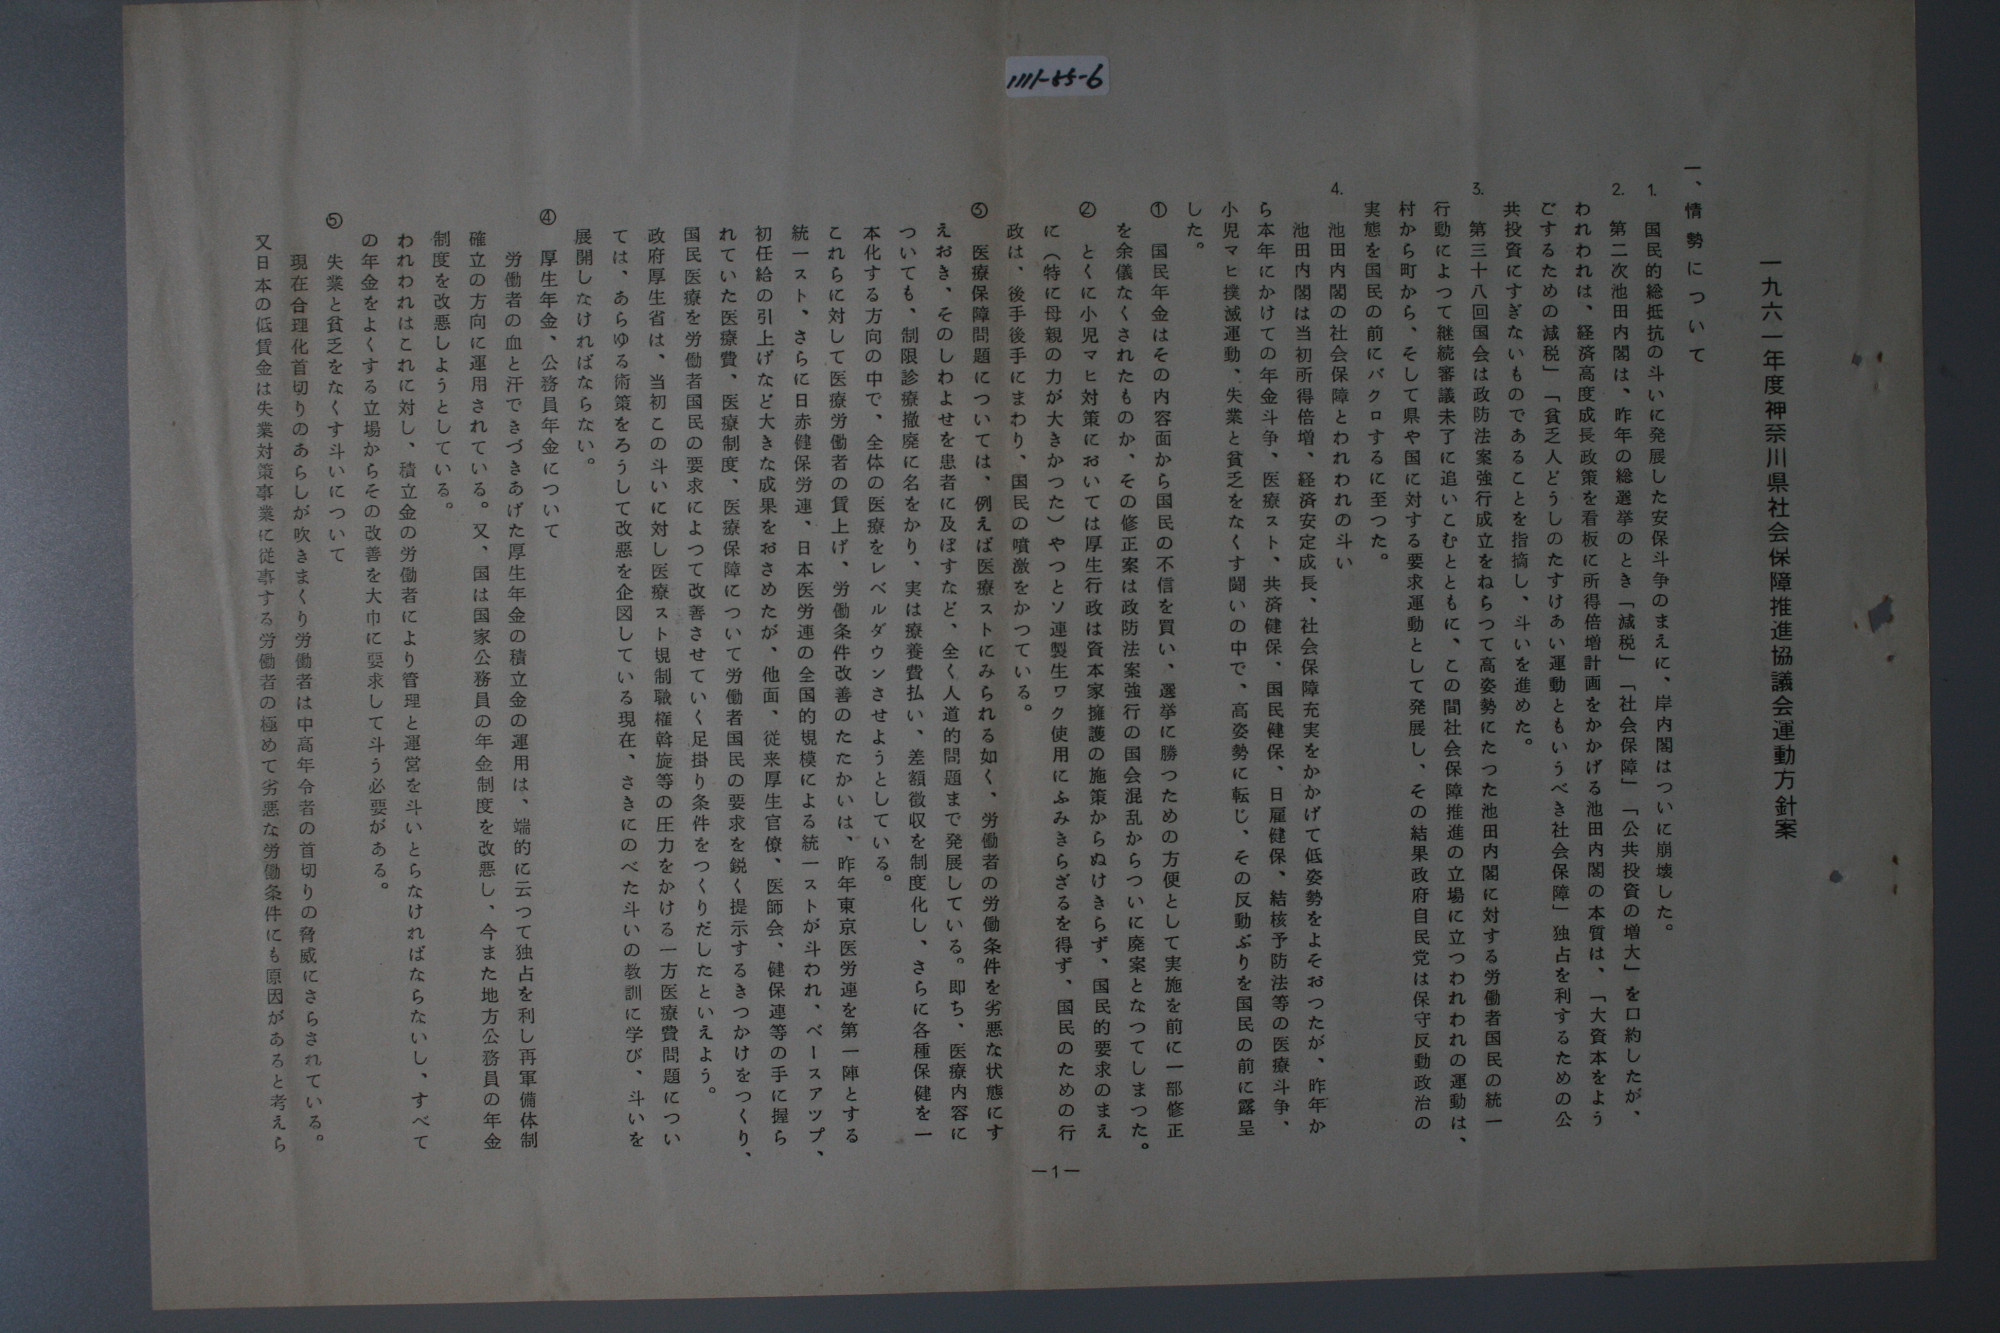 1111-55-6
一九六一年度神奈川県社会保障推進協議会運動方針案
一、情勢について
1. 国民的総抵抗の斗いに発展した安保斗争のまえに、岸内閣はついに崩壊した。
2. 第二次池田内閣は、昨年の総選挙のとき「減税」「社会保障」「公共投資の増大」を口約したが、
われわれは、経済高度成長政策を看板に所得倍増計画をかかげる池田内閣の本質は、「大資本をよう
ごするための減税」「貧乏人どうしのたすけあい運動ともいうべき社会保障」独占を利するための公
共投資にすぎないものであることを指摘し、斗いを進めた。
3. 第三十八回国会は政防法案強行成立をねらつて高姿勢にたつた池田内閣に対する労働者国民の統一
行動によつて継続審議未了に追いこむとともに、この間社会保障推進の立場に立つわれわれの運動は、
村から町から、そして県や国に対する要求運動として発展し、その結果政府自民党は保守反動政治の
実態を国民の前にバクロするに至つた。
4. 池田内閣の社会保障とわれわれの斗い
池田内閣は当初所得倍増、経済安定成長、社会保障充実をかかげて低姿勢をよそおつたが、昨年か
ら本年にかけての年金斗争、医療スト、共済健保、国民健保、日雇健保、結核予防法等の医療斗争、
小児マヒ撲滅運動、失業と貧乏をなくす闘いの中で、高姿勢に転じ、その反動ぶりを国民の前に露呈
した。
① 国民年金はその内容面から国民の不信を買い、選挙に勝つための方便として実施を前に一部修正
を余儀なくされたものか、その修正案は政防法案強行の国会混乱からついに廃案となつてしまつた。
② とくに小児マヒ対策においては厚生行政は資本家擁護の施策からぬけきらず、国民的要求のまえ
に（特に母親の力が大きかつた）やつとソ連製生ワク使用にふみきらざるを得ず、国民のための行
政は、後手後手にまわり、国民の噴激をかつている。
③ 医療保障問題については、例えば医療ストにみられる如く、労働者の労働条件を劣悪な状態にす
えおき、そのしわよせを患者に及ぼすなど、全く人道的問題まで発展している。即ち、医療内容に
ついても、制限診療撤廃に名をかり、実は療養費払い、差額徴収を制度化し、さらに各種保健を一
本化する方向の中で、全体の医療をレベルダウンさせようとしている。
これらに対して医療労働者の賃上げ、労働条件改善のたたかいは、昨年東京医労連を第一陣とする
統一スト、さらに日赤健保労連、日本医労連の全国的規模による統一ストが斗われ、ベースアップ、
初任給の引上げなど大きな成果をおさめたが、他面、従来厚生官僚、医師会、健保連等の手に握ら
れていた医療費、医療制度、医療保障について労働者国民の要求を鋭く提示するきつかけをつくり、
国民医療を労働者国民の要求によつて改善させていく足掛り条件をつくりだしたといえよう。
政府厚生省は、当初この斗いに対し医療スト規制職権斡旋等の圧力をかける一方医療費問題につい
ては、あらゆる術策をろうして改悪を企図している現在、さきにのべた斗いの教訓に学び、斗いを
展開しなければならない。
④ 厚生年金、公務員年金について
労働者の血と汗できづきあげた厚生年金の積立金の運用は、端的に云つて独占を利し再軍備体制
確立の方向に運用されている。又、国は国家公務員の年金制度を改悪し、今また地方公務員の年金
制度を改悪しようとしている。
われわれはこれに対し、積立金の労働者により管理と運営を斗いとらなければならないし、すべて
の年金をよくする立場からその改善を大巾に要求して斗う必要がある。
⑤ 失業と貧乏をなくす斗いについて
現在合理化首切りのあらしが吹きまくり労働者は中高年令者の首切りの脅威にさらされている。
又日本の低賃金は失業対策事業に従事する労働者の極めて劣悪な労働条件にも原因があると考えら
—1—